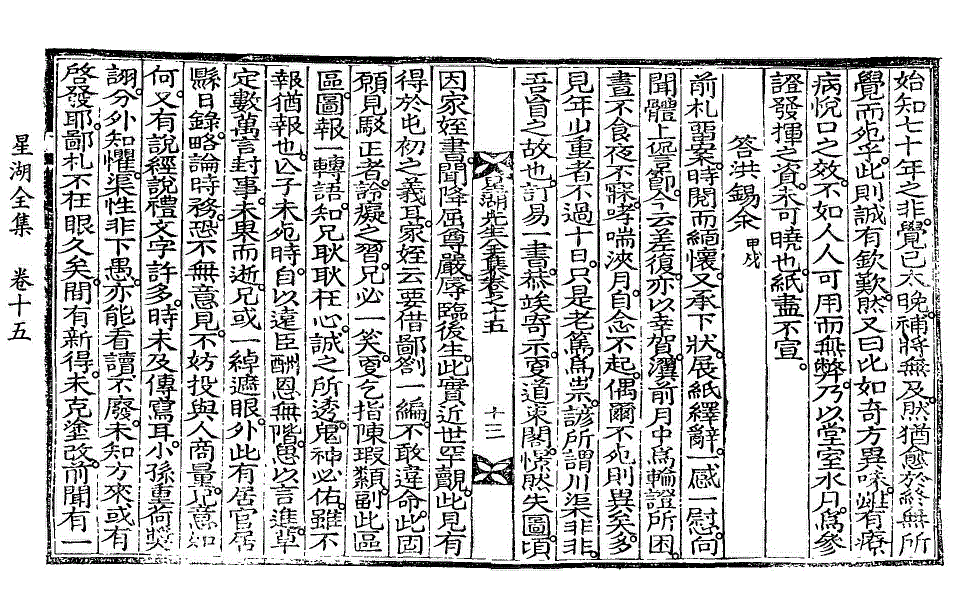 始知七十年之非。覺已太晚。補將無及。然猶愈於終無所
覺而死乎。此則誠有欽歎。然又曰比如奇方異味。雖有療
病悅口之效。不如人人可用而無弊。乃以堂室水月。爲參
證發揮之資。未可曉也。紙盡不宣。
答洪錫余 甲戌
前札翡案。時閱而緬懷。又承下狀。展紙繹辭。一感一慰。向
聞體上愆節。今云差復。亦以幸賀。瀷前月中爲輪證所困。
晝不食夜不寐。哮喘浹月。自念不起。偶爾不死則異矣。多
見年少重者不過十日。只是老篤爲祟。諺所謂川渠非非
吾資之故也。訂易一書。恭竢寄示。更道東閣。憬然失圖。頃
星湖先生全集卷之十五
十三
因家姪書。聞降屈尊嚴。辱臨後生。此實近世罕覿。此見有
得於屯初之義耳。家姪云要借鄙劄一編。不敢違命。此固
願見駁正者。論礙之習。兄必一笑。更乞指陳瑕纇。副此區
區。圖報一轉語。知兄耿耿在心。誠之所透。鬼神必佑。雖不
報猶報也。亾子未死時。自以遠臣酬恩無階。思以言進。草
定數萬言封事。未果而逝。兄或一綽遮眼。外此有居官居
縣日錄。略論時務。恐不無意見。不妨投與人商量。兄意如
何。又有說經說禮文字許多。時未及傳寫耳。小孫重荷獎
詡。分外知懼。渠性非下愚。亦能看讀不廢。未知方來。或有
啓發耶。鄙札不在眼久矣。間有新得。未克塗改。前聞有一
星湖全集 卷十五